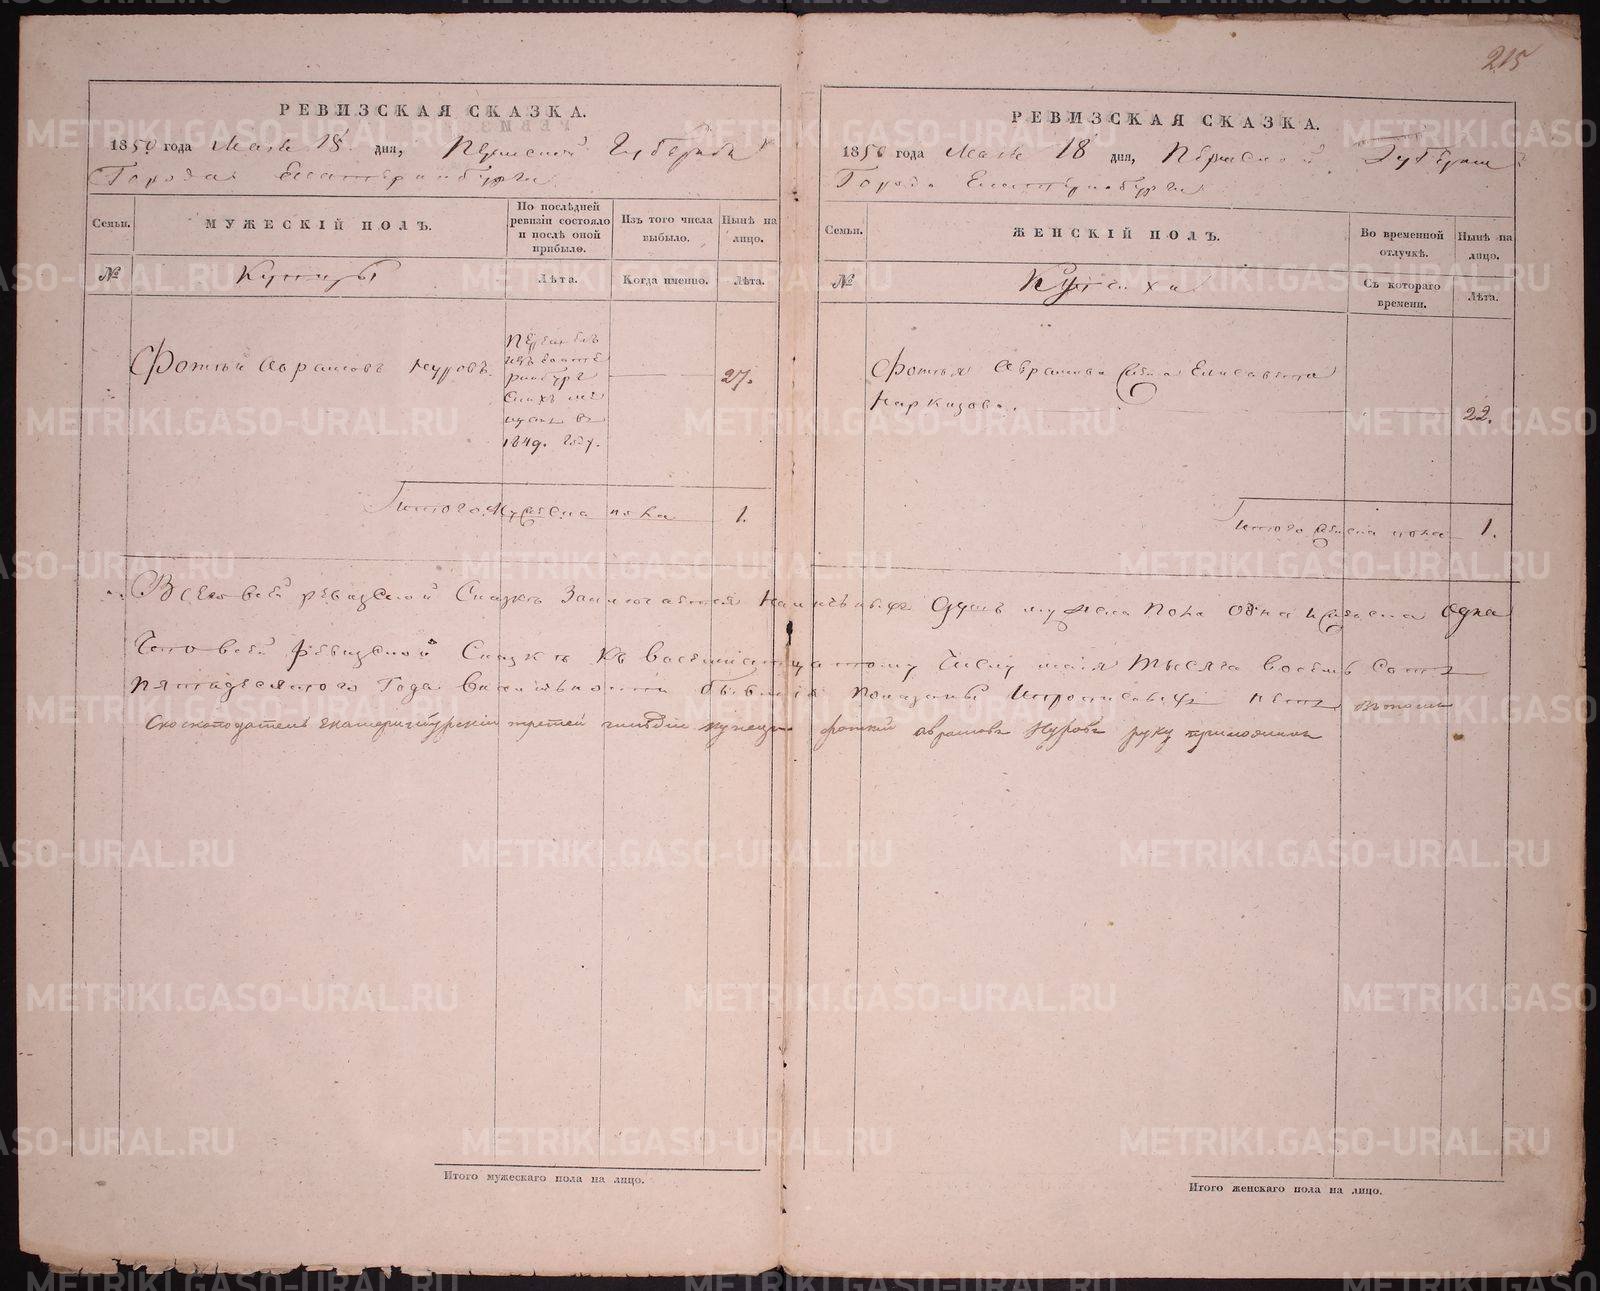 215
РЕВИЗСКАЯ СКАЗКА.
1850 года Мая 18 дня, Пермской Губернии
Города Екатеринбурга
Семьи.
МУЖЕСКІЙ ПОЛЪ.
По послѣдней
ревизіи состояло
и послѣ оной
прибыло.
Изъ того числа
выбыло.
Нынѣ на
лицо.
№
Купцы
Лѣта.
Когда именно.
Лѣта.
Фотий Аврамовъ Нуровъ
изъ Екате
ринбург
скихъ ме
щанъ въ
1849. году.
27.
Итого мужеска пола 1.
РЕВИЗСКАЯ СКАЗКА.
1850 года Мая 18 дня, Пермской Губернии
Города Екатеринбурга
Семьи.
ЖЕНСКІЙ ПОЛЪ.
Во временной
отлучкѣ.
Нынѣ на
лицо.
№
Купчиха
Съ котораго
времени.
Лѣта.
Фотия Аврамова жена Елисавета
Наркизова.
22.
Итого женска пола 1.
В сей ревизской Сказкѣ Заключается душъ мужеска пола одна женска одна
Что в сей ревизской Сказкѣ къ восемнадцатому числу мая тысяча восемь сотъ
пятидесятого года показаны и прописныхъ нетъ въ томъ
Екатеринбургскій третей гильдіи купецъ Фотий Аврамовъ Нуровъ руку приложилъ
Итого мужескаго пола на лицо.
Итого женскаго пола на лицо.
METRIKI.GASO-URAL.RU